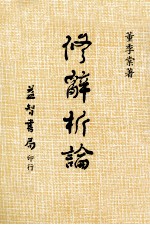 董季棠著
修辭析論
益智書局
印行